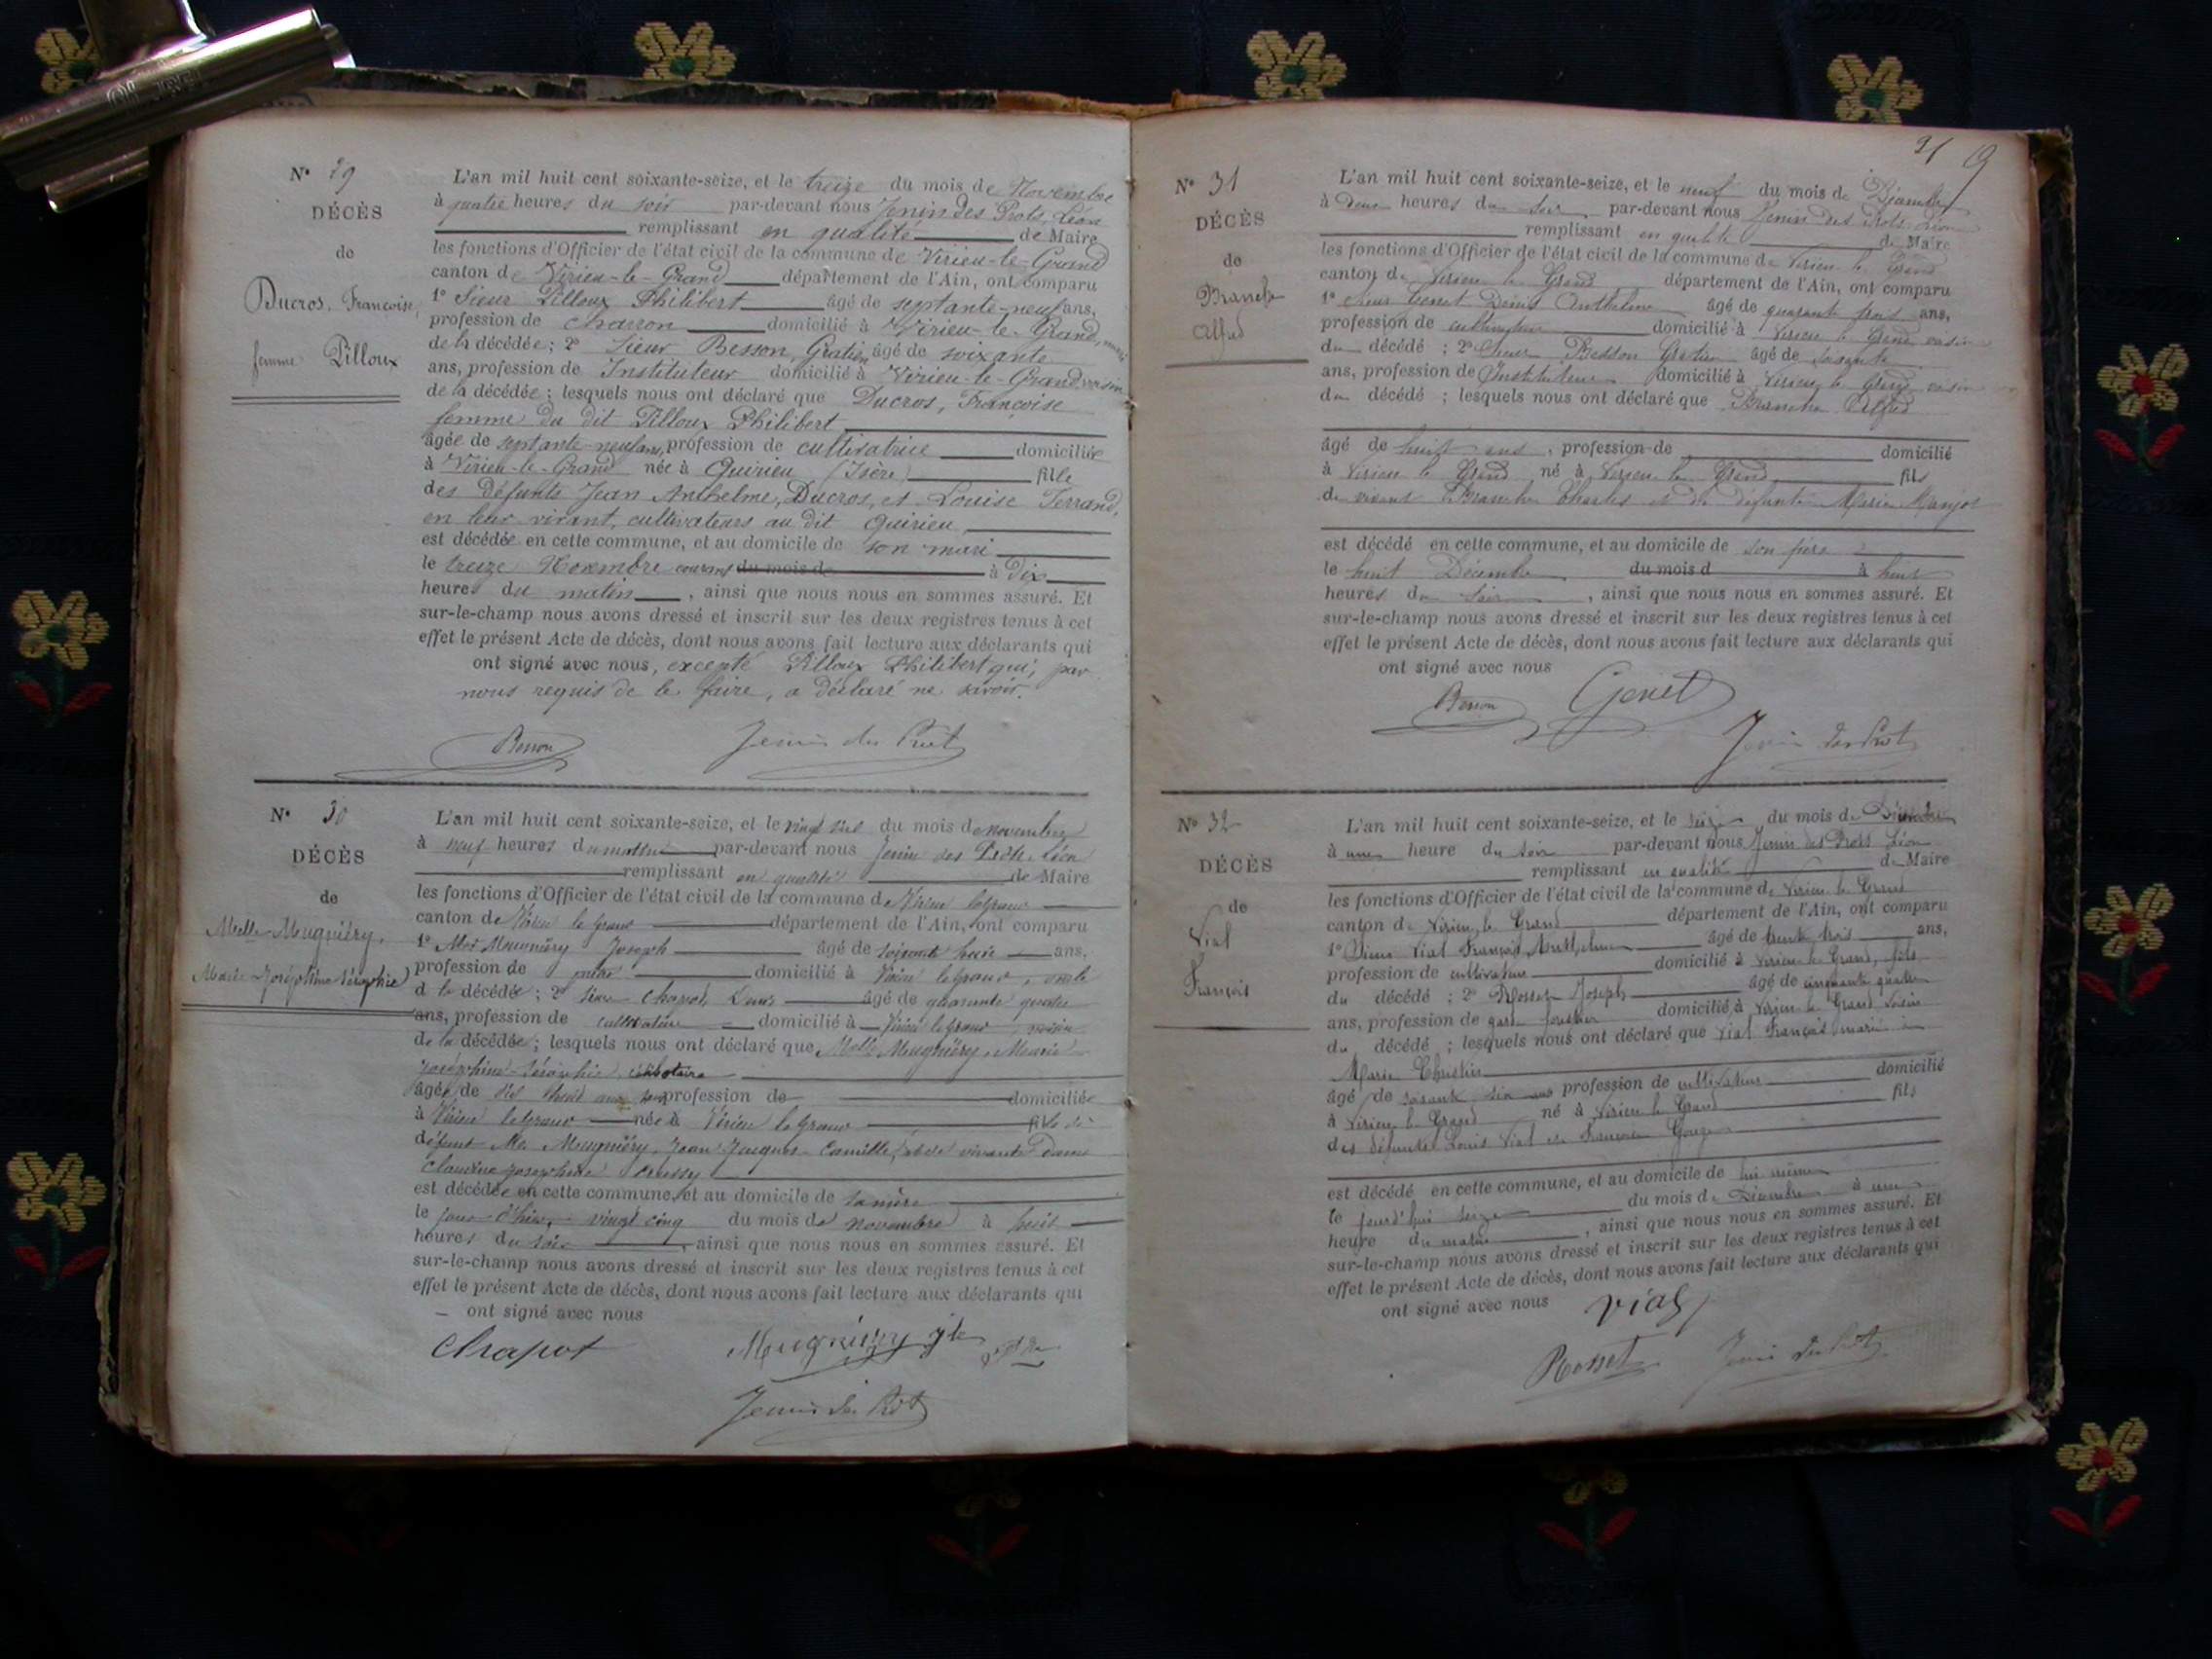 N° 29
DÉCÈS
de
Ducros, Françoise,
femme Pilloux
L'an mil huit cent soixante-seize, et le treize du mois de Novembre
à quatre heures du soir par-devant nous Jenin des Prots Léon
remplissant en qualité de Maire
les fonctions d'Officier de l'état civil de la commune de Virieu-le-Grand
canton de Virieu-le-Grand département de l'Ain, ont comparu
1° Sieur Pilloux Philibert âgé de septante-neuf ans,
profession de charron domicilié à Virieu-le-Grand, mari
de la décédée; 2° Sieur Besson, Gratien âgé de soixante
ans, profession de Instituteur domicilié à Virieu-le-Grand voisin
de la décédée; lesquels nous ont déclaré que Ducros, Françoise
femme du dit Pilloux Philibert
âgée de septante-neuf ans, profession de cultivatrice domiciliée
à Virieu-le-Grand née à Quirieu (Isère) fille
des défunts Jean Anthelme, Ducros, et Louise Ferrand,
en leur vivant, cultivateurs au dit Quirieu
est décédée en cette commune, et au domicile de son mari
le treize Novembre courant du mois de à Dix
heures du matin, ainsi que nous nous en sommes assuré. Et
sur-le-champ nous avons dressé et inscrit sur les deux registres tenus à cet
effet le présent Acte de décès, dont nous avons fait lecture aux déclarants qui
ont signé avec nous, excepté Pilloux Philibert qui, par
nous requis de le faire, a déclaré ne savoir.
Besson Jenin des Prots
N° 30
DÉCÈS
de
Melle Mugniéry,
Marie Joséphine Séraphie
L'an mil huit cent soixante-seize, et le vingt six du mois de novembre
à neuf heures du matin par-devant nous Jenin des Prots Léon
remplissant en qualité de Maire
les fonctions d'Officier de l'état civil de la commune de Virieu le grand
canton de Virieu le grand département de l'Ain, ont comparu
1° Mugniéry Joseph âgé de soixante ans,
profession de domicilié à Virieu le grand, oncle
d la décédée; 2° sieur Chapot, Denis âgé de quarante quatre
ans, profession de cultivateur domicilié à Virieu le grand, voisin
de la décédée; lesquels nous ont déclaré que Melle Mugniéry, Marie
Joséphine Séraphie, célibataire
âgée de dix huit ans profession de domiciliée
à Virieu le grand née à Virieu le grand fille de
défunt Mugniéry, Jean Jacques Camille, et de vivante Dame
Claudine Joséphine
est décédée en cette commune, et au domicile de sa mère
le jour d'hier, vingt cinq du mois de novembre à huit
heures du soir, ainsi que nous nous en sommes assuré. Et
sur-le-champ nous avons dressé et inscrit sur les deux registres tenus à cet
effet le présent Acte de décès, dont nous avons fait lecture aux déclarants qui
ont signé avec nous
Chapot Mugniéry
Jenin des Prots
N° 31
DÉCÈS
de
Branche
Alfred
L'an mil huit cent soixante-seize, et le neuf du mois de Décembre
à Deux heures du soir par-devant nous Jenin des Prots, Léon
remplissant en qualité de Maire
les fonctions d'Officier de l'état civil de la commune de Virieu le Grand
canton de Virieu le Grand département de l'Ain, ont comparu
1° Sieur Genet Denis Anthelme âgé de quarante trois ans,
profession de cultivateur domicilié à Virieu le Grand voisin
du décédé; 2° Sieur Besson Gratien âgé de soixante
ans, profession de Instituteur domicilié à Virieu le Grand voisin
du décédé; lesquels nous ont déclaré que Branche Alfred
âgé de huit ans, profession de domicilié
à Virieu le Grand né à Virieu le Grand fils
de vivant Branche Charles et de défunte Marie Manjot
est décédé en cette commune, et au domicile de son père
le huit Décembre du mois d à huit
heures du soir, ainsi que nous nous en sommes assuré. Et
sur-le-champ nous avons dressé et inscrit sur les deux registres tenus à cet
effet le présent Acte de décès, dont nous avons fait lecture aux déclarants qui
ont signé avec nous
Besson Genet
Jenin des Prots
N° 32
DÉCÈS
de
Vial
François
L'an mil huit cent soixante-seize, et le seize du mois de Décembre
à une heure du soir par-devant nous Jenin des Prots Léon
remplissant en qualité de Maire
les fonctions d'Officier de l'état civil de la commune de Virieu le Grand
canton de Virieu le Grand département de l'Ain, ont comparu
1° Vial François Anthelme âgé de trente trois ans,
profession de cultivateur domicilié à Virieu le Grand, fils
du décédé; 2° Rosset Joseph âgé de cinquante quatre
ans, profession de garde forestier domicilié à Virieu le Grand voisin
du décédé; lesquels nous ont déclaré que Vial François mari de
Marie Christin
âgé de soixante six ans profession de cultivateur domicilié
à Virieu le Grand né à Virieu le Grand fils
des défunts Louis Vial et Françoise
est décédé en cette commune, et au domicile de lui même
le jourd'hui seize du mois de Décembre à une
heure du matin, ainsi que nous nous en sommes assuré. Et
sur-le-champ nous avons dressé et inscrit sur les deux registres tenus à cet
effet le présent Acte de décès, dont nous avons fait lecture aux déclarants qui
ont signé avec nous Vial
Rosset Jenin des Prots